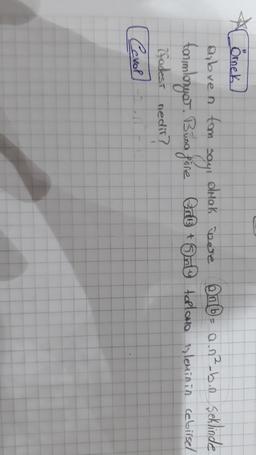 Örnek
a,b ve n tam sayı olmak üzere (a n b) = a.n² - b.n şeklinde
tanımlanıyor. Buna göre + toplama işleminin cebirsel
ifadesi nedir?
Cevap